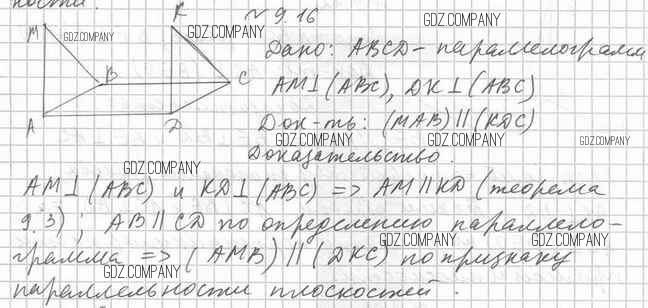 ности.
K
№ 9.16
GDZ.COMPANY
M
GDZ.COMPANY
GDZ.COMPANY
Дано: ABCD - параллелограмм
B
C
AM⊥(ABC), DK⊥(ABC)
A
D
Док-ть: (MAB) || (KDC)
GDZ.COMPANY
GDZ.COMPANY
GDZ.COMPANY
Доказательство.
GDZ.COMPANY
AM⊥(ABC) и KD⊥(ABC) => AM||KD (теорема
GDZ.COMPANY
GDZ.COMPANY
9.3); AB||CD по определению параллело-
GDZ.COMPANY
GDZ.COMPANY
грамма => (AMB) || (DKC) по признаку
GDZ.COMPANY
параллельности плоскостей.